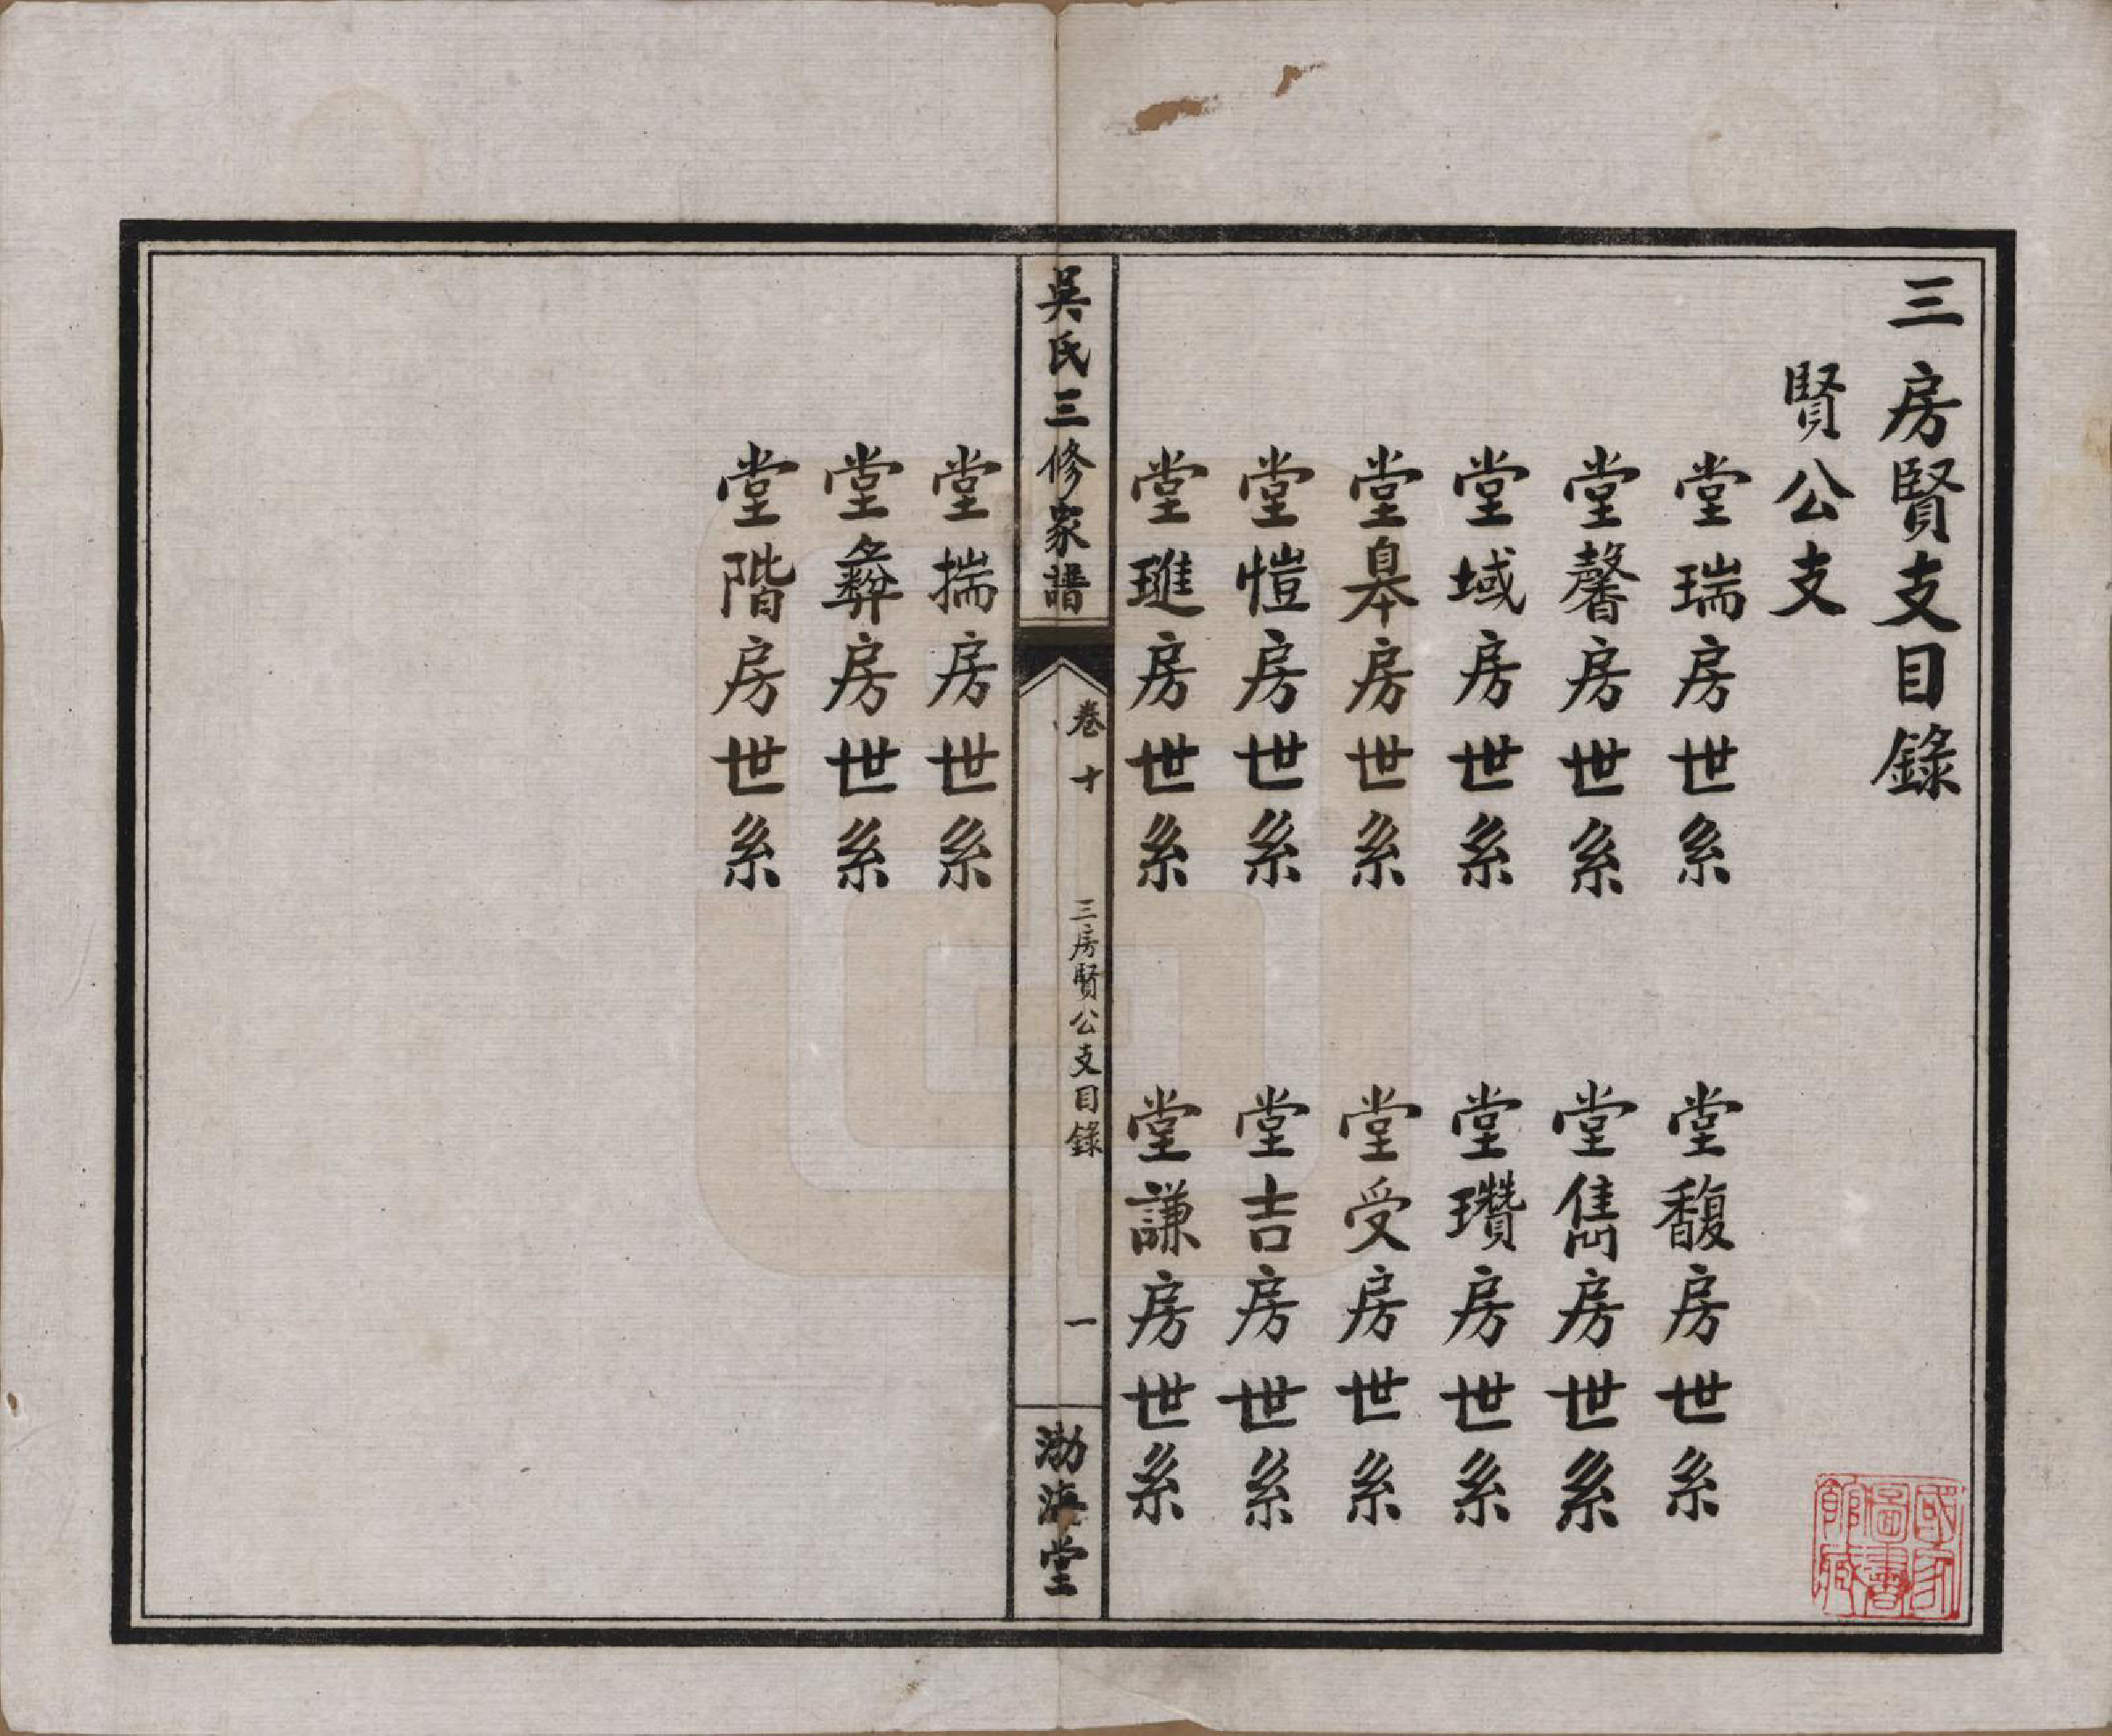 三房賢支目錄
賢公支
堂瑞房世系
堂馥房世系
堂馨房世系
堂雋房世系
堂域房世系
堂瓚房世系
堂皋房世系
堂受房世系
堂愷房世系
堂吉房世系
堂璡房世系
堂謙房世系
吳氏三修家譜
卷十
三房賢公支目錄
一
渤海堂
堂揣房世系
堂彝房世系
堂階房世系
國家
圖書
館藏